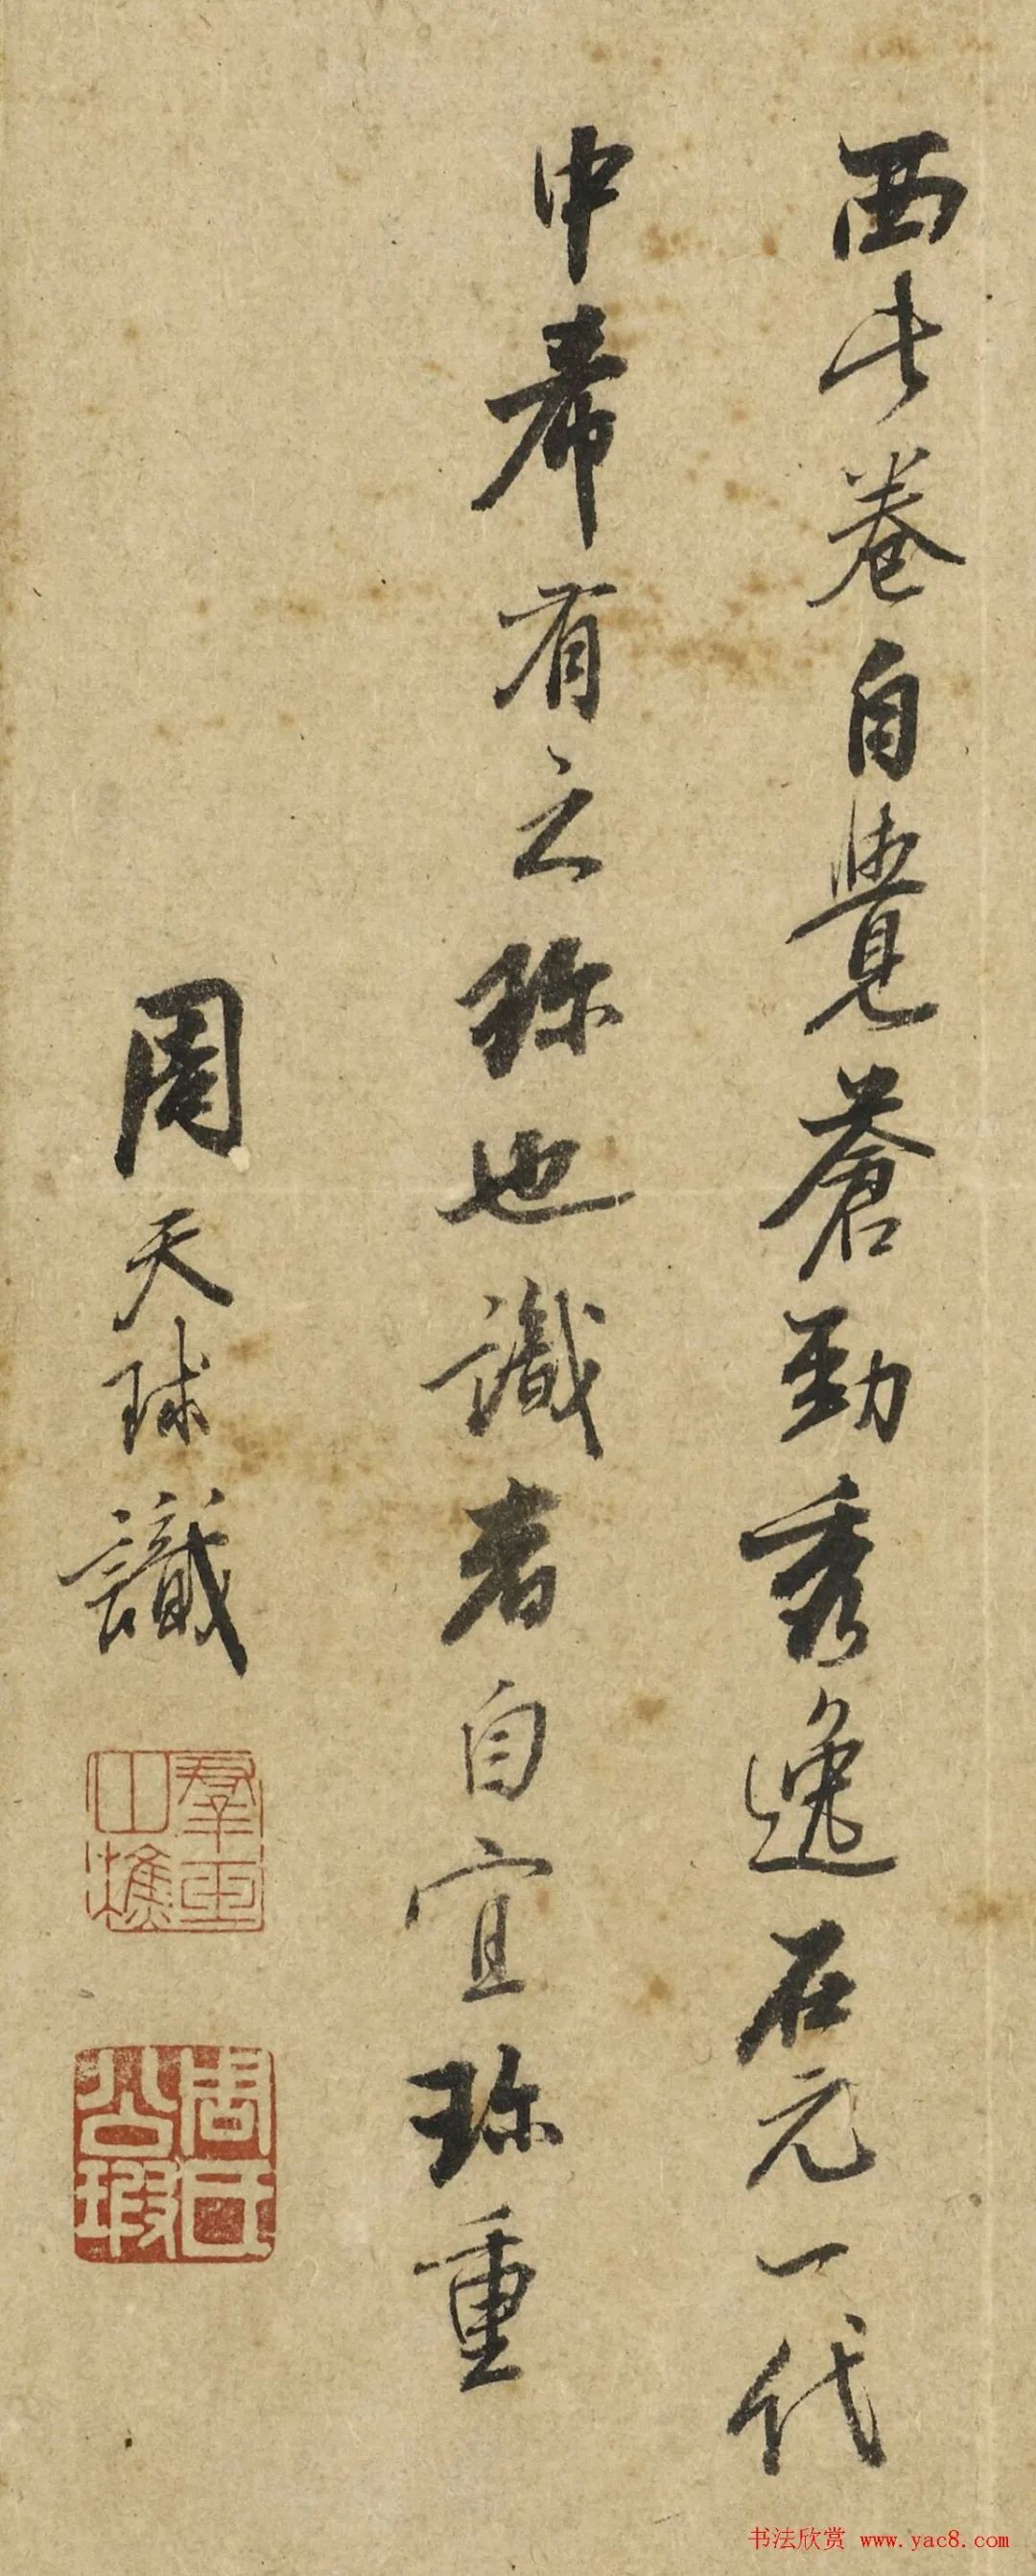 西此卷自覺蒼勁秀逸在元一代
中希有之珎也識者自宜珎重
周天球識
羣玉山樵
周氏公瑕
书法欣赏 www.yac8.com